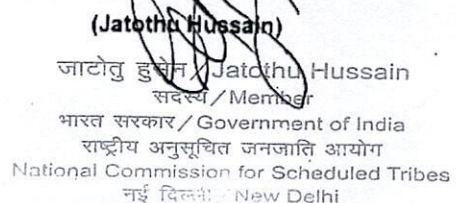 (Jatothu Hussain)
जाटोतु हुसेन / Jatothu Hussain
सदस्य / Member
भारत सरकार / Government of India
राष्ट्रीय अनुसूचित जनजाति आयोग
National Commission for Scheduled Tribes
नई दिल्ली / New Delhi